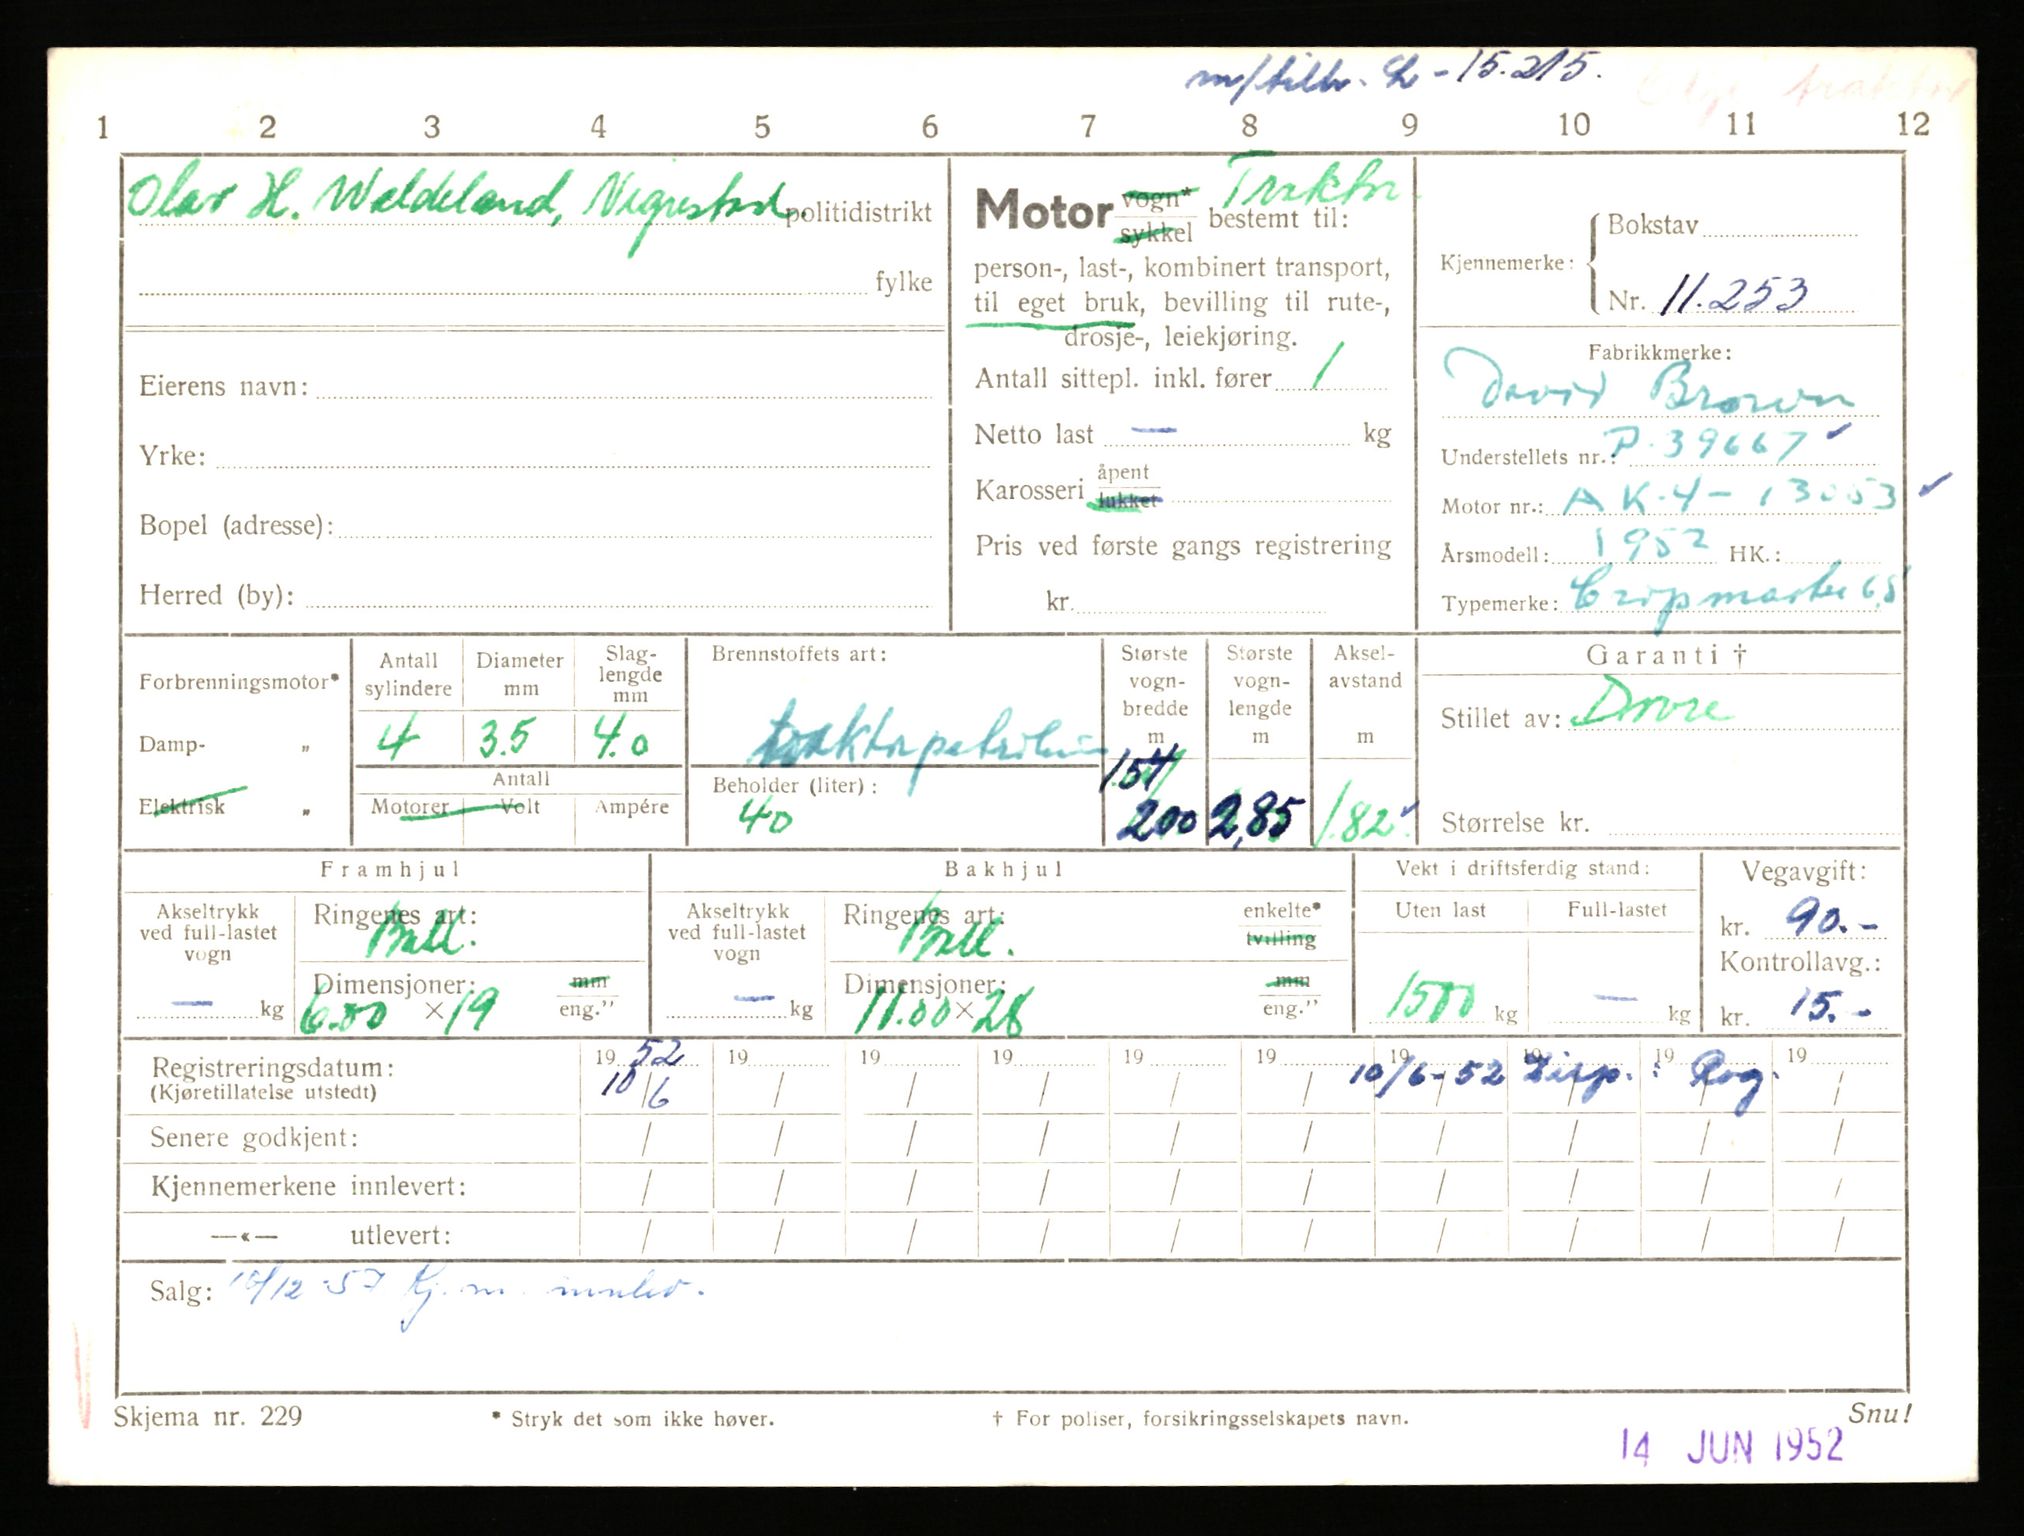 m/tilh. L - 15.215.
1 2 3 4 5 6 7 8 9 10 11 12
Olav H. Waldeland, Vigrestad. politidistrikt
fylke
Eierens navn:
Yrke:
Bopel (adresse):
Herred (by):
Motor vogn* sykkel bestemt til: Traktor
person-, last-, kombinert transport,
til eget bruk, bevilling til rute-,
drosje-, leiekjøring.
Antall sittepl. inkl. fører 1
Netto last — kg
Karosseri åpent lukket
Pris ved første gangs registrering
kr.
Kjennemerke: Bokstav
Nr. 11.253
Fabrikkmerke:
David Brown
Understellets nr.: P. 39667
Motor nr.: AK.4 - 13053
Årsmodell: 1952 HK.:
Typemerke: Cropmaster 6,5
Forbrenningsmotor*
Damp- „
Elektrisk „
Antall sylindere
4
Diameter mm
3.5
Slag-lengde mm
4.0
Antall
Motorer Volt Ampére
Brennstoffets art:
traktorpetroleum
Beholder (liter):
40
Største vogn-bredde m
1.54
200
Største vogn-lengde m
2,85
Aksel-avstand m
1.82
Garanti †
Stillet av: Dovre
Størrelse kr.
Framhjul
Akseltrykk ved full-lastet vogn
— kg
Ringenes art:
Ball.
Dimensjoner: mm
6.00 × 19 eng."
Bakhjul
Akseltrykk ved full-lastet vogn
— kg
Ringenes art: enkelte*
Ball. tvilling
Dimensjoner: mm
11.00 × 28 eng."
Vekt i driftsferdig stand:
Uten last Full-lastet
1500 kg — kg
Vegavgift:
kr. 90.-
Kontrollavg.:
kr. 15.-
Registreringsdatum: 19 52 19 19 19 19 19 19 19 19 19
(Kjøretillatelse utstedt) 10/6 / / / / / 10/6-52 Disp. : Rog.
Senere godkjent: / / / / / / / / / /
Kjennemerkene innlevert: / / / / / / / / / /
—«— utlevert: / / / / / / / / / /
Salg: 10/12-57 Kj. m. innlev.
Skjema nr. 229 * Stryk det som ikke høver. † For poliser, forsikringsselskapets navn. Snu!
14 JUN 1952